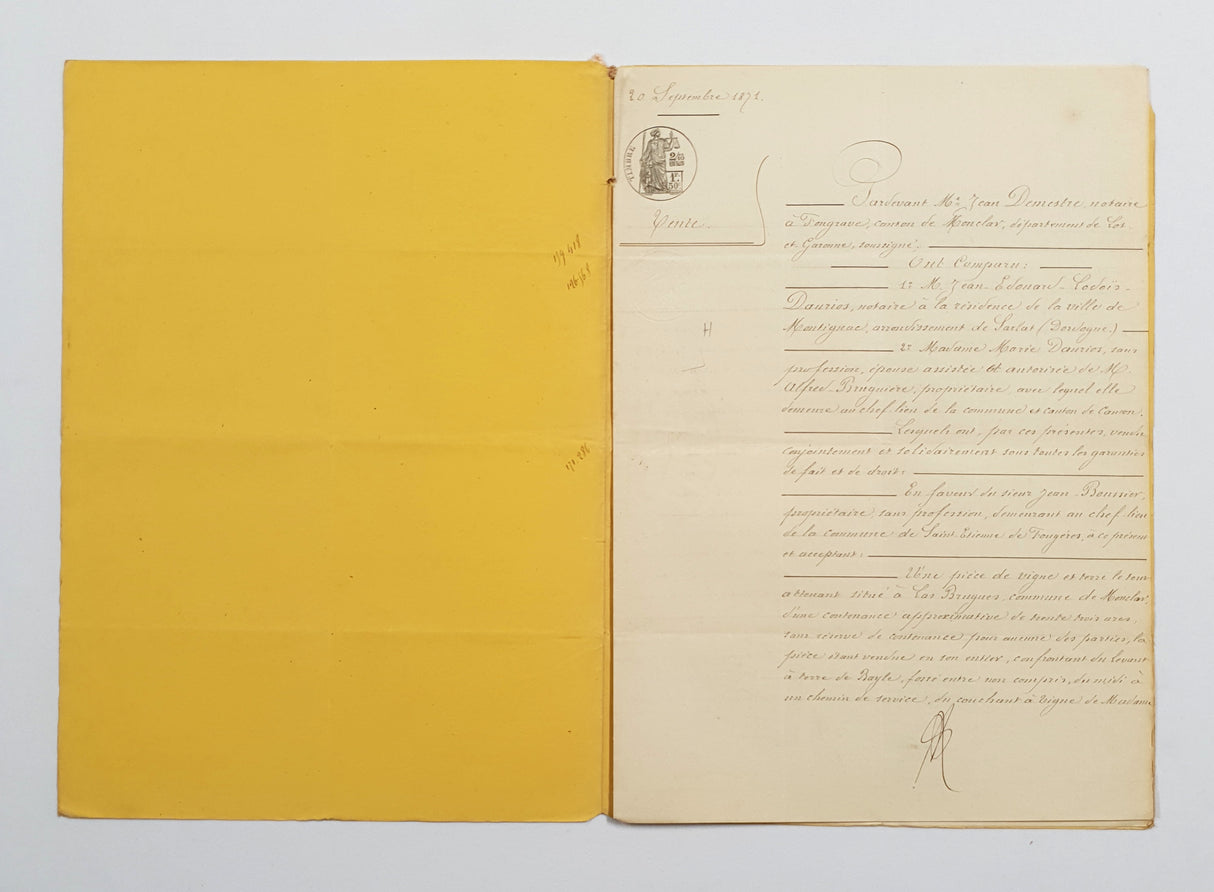 174 418
171.286
20 Septembre 1871.
TIMBRE
Vente.
H
Pardevant Me. Jean Demestre, notaire
à Fongrave, canton de Monclar, département de Lot-
et Garonne, soussigné.
Ont Comparu:
1º M. Jean-Edouard-Lodoïs-
Daurios, notaire à la résidence de la ville de
Montignac, arrondissement de Sarlat (Dordogne.)
2º Madame Marie Daurios, sans
profession, épouse assistée et autorisée de M.
Alfred Bruguière, propriétaire, avec lequel elle
demeure au chef-lieu de la commune et canton de Cancon.
Lesquels ont, par ces présentes, vendu
conjointement et solidairement sous toutes les garanties
de fait et de droit:
En faveur du sieur Jean
propriétaire, sans profession, demeurant au chef-lieu
de la commune de Saint-Etienne de Fougéres, à ce présent
et acceptant:
Une pièce de vigne et terre le tout
attenant situé à Las Brugues, commune de Monclar,
d'une contenance approximative de trente trois ares,
sans réserve de contenance pour aucune des parties, la
pièce étant vendue en son entier, confrontant du Levant
à terre de Bayle, fossé entre non compris, du midi à
un chemin de service, du couchant à vigne de Madame